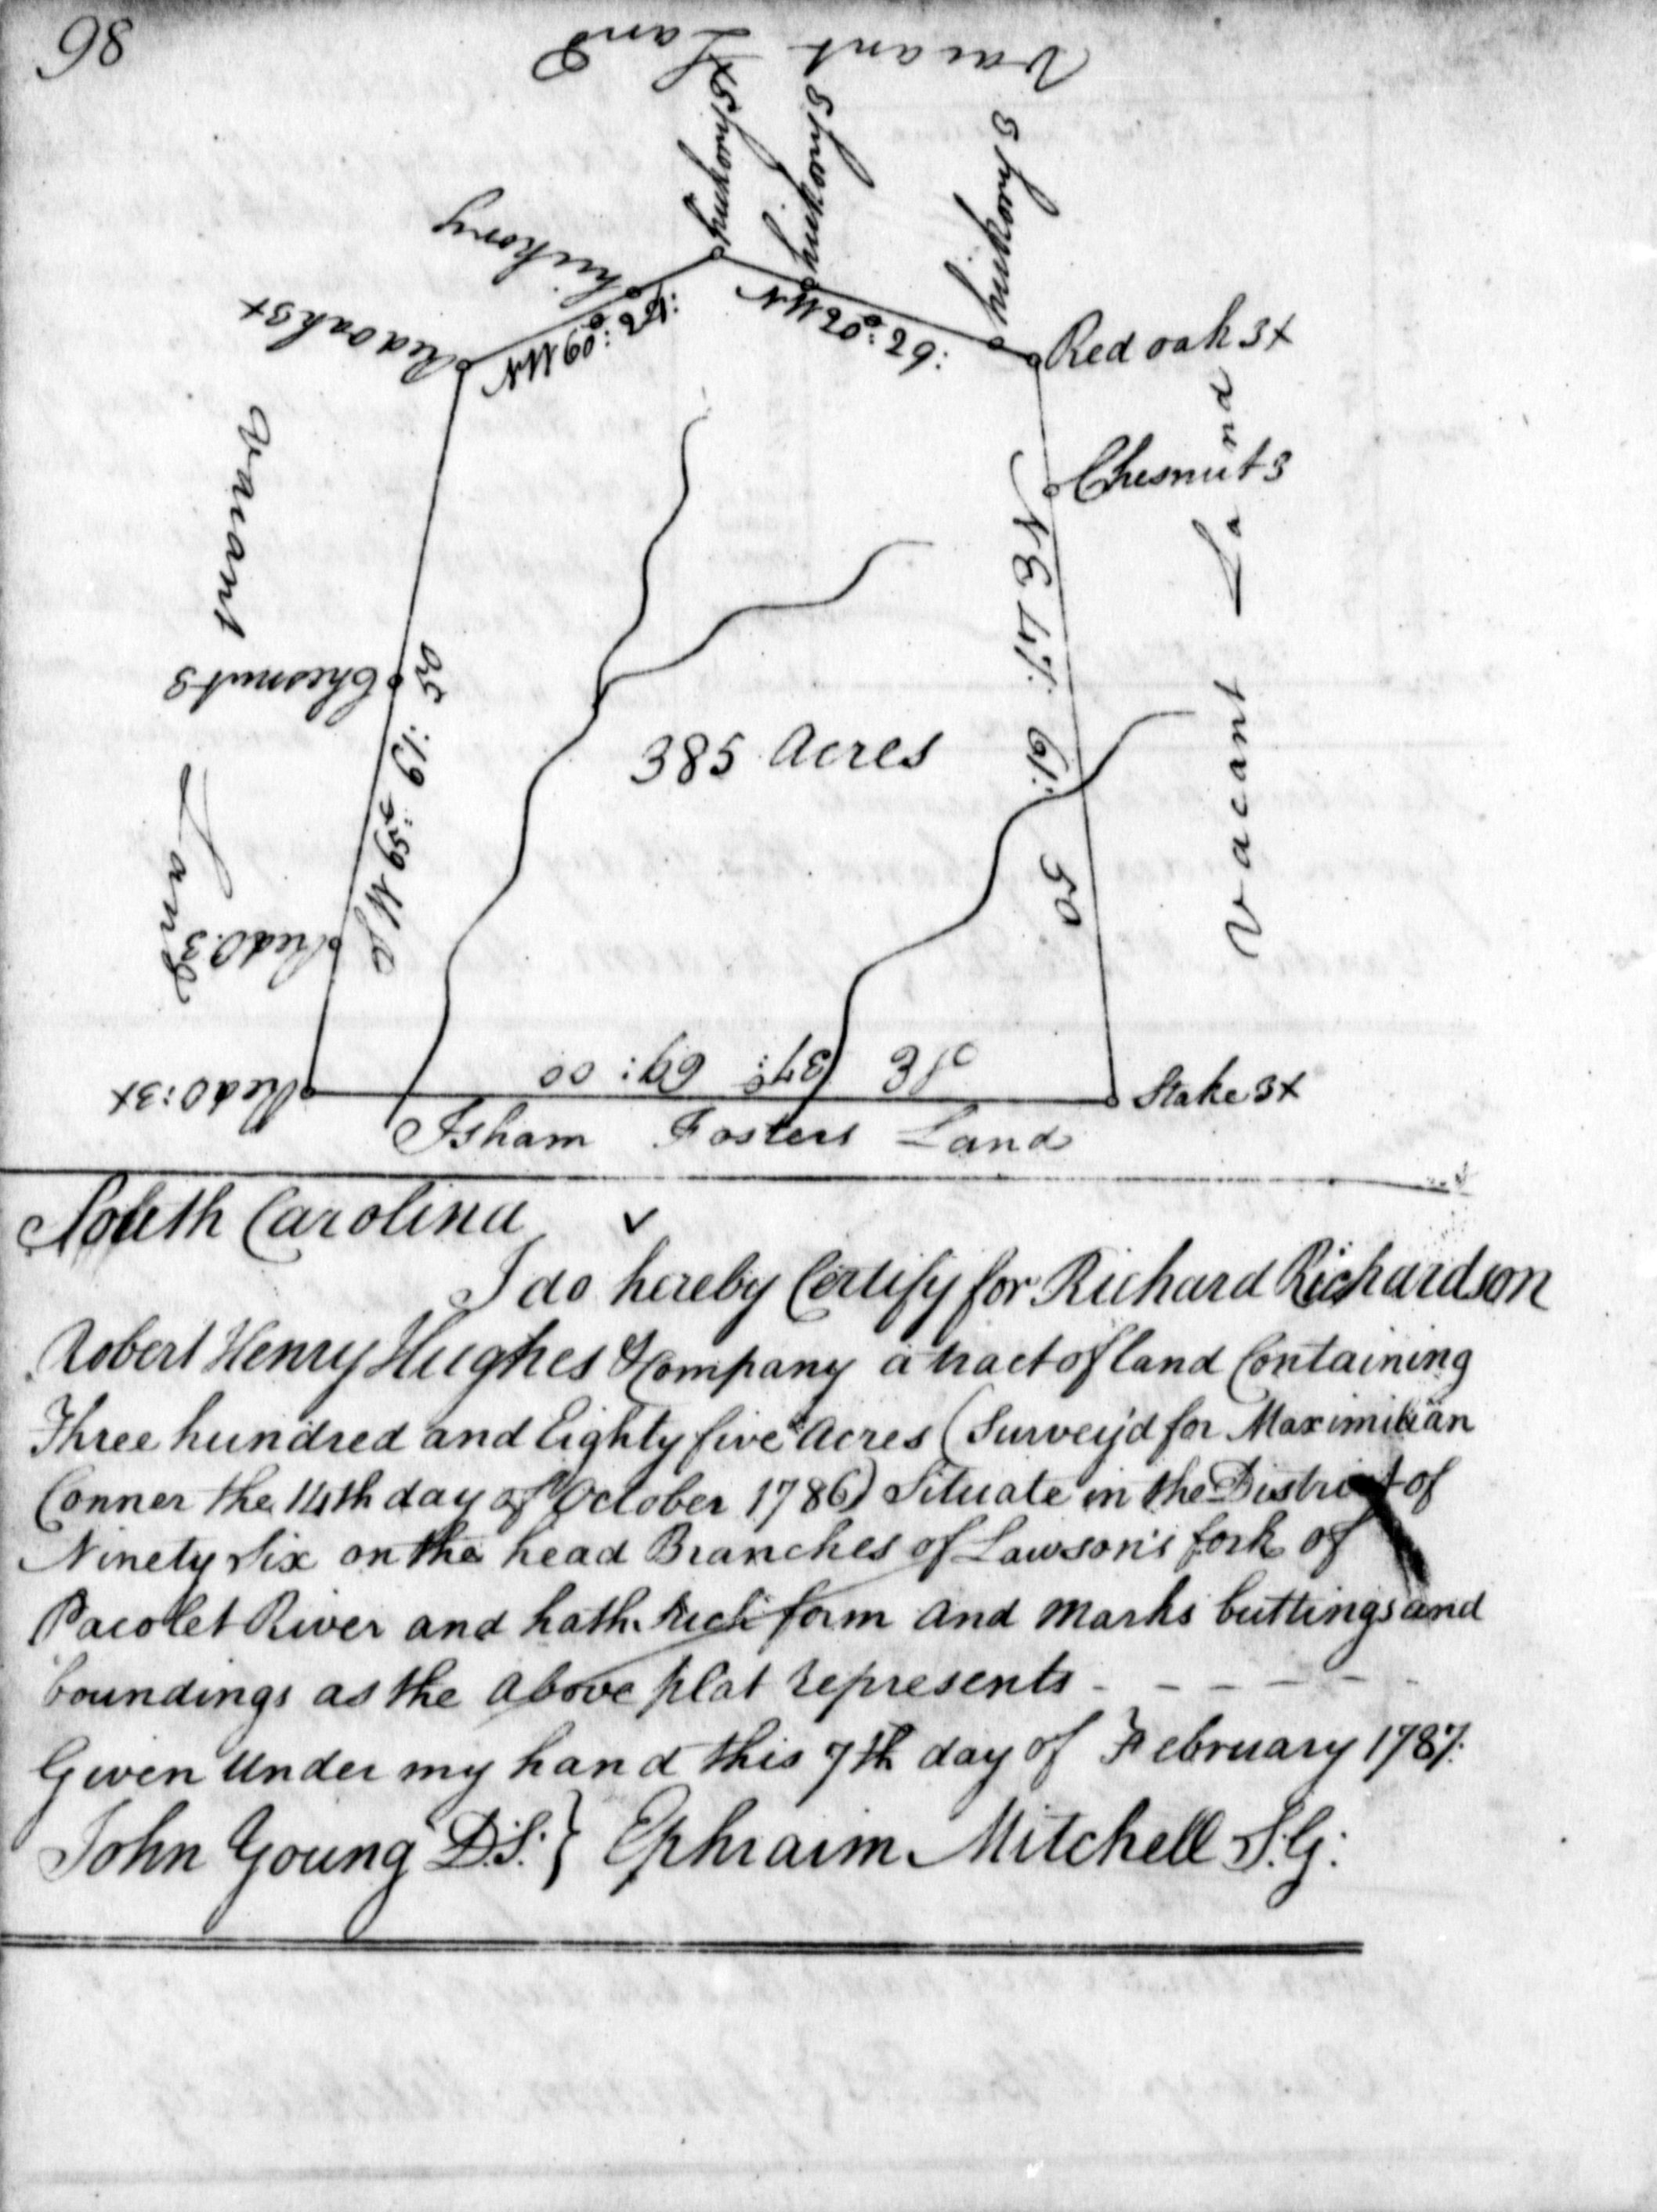 98
Vacant Land
hickory 3x
hickory 3
hickory 3
hickory
Red oak 3x
Red oak 3x
NW 60:
NW 20: 29:
Chesnut 3
Vacant Land
Vacant Land
Chesnut 3
NE 47: 61: 50
SW 59: 61: 50
385 Acres
Red O: 3
Red O: 3x
SE 34: 69: 00
Stake 3x
Isham Fosters Land
South Carolina
I do hereby Certify for Richard Richardson
Robert Henry Hughes & Company a tract of land Containing
Three hundred and Eighty five Acres (Survey'd for Maximilian
Conner the 14th day of October 1786) Situate in the District of
Ninety Six on the head Branches of Lawson's fork of
Pacolet River and hath Such form and marks buttings and
boundings as the above plat represents - - - - - -
Given Under my hand this 7th day of February 1787:
John Young D.S. } Ephraim Mitchell S.G: